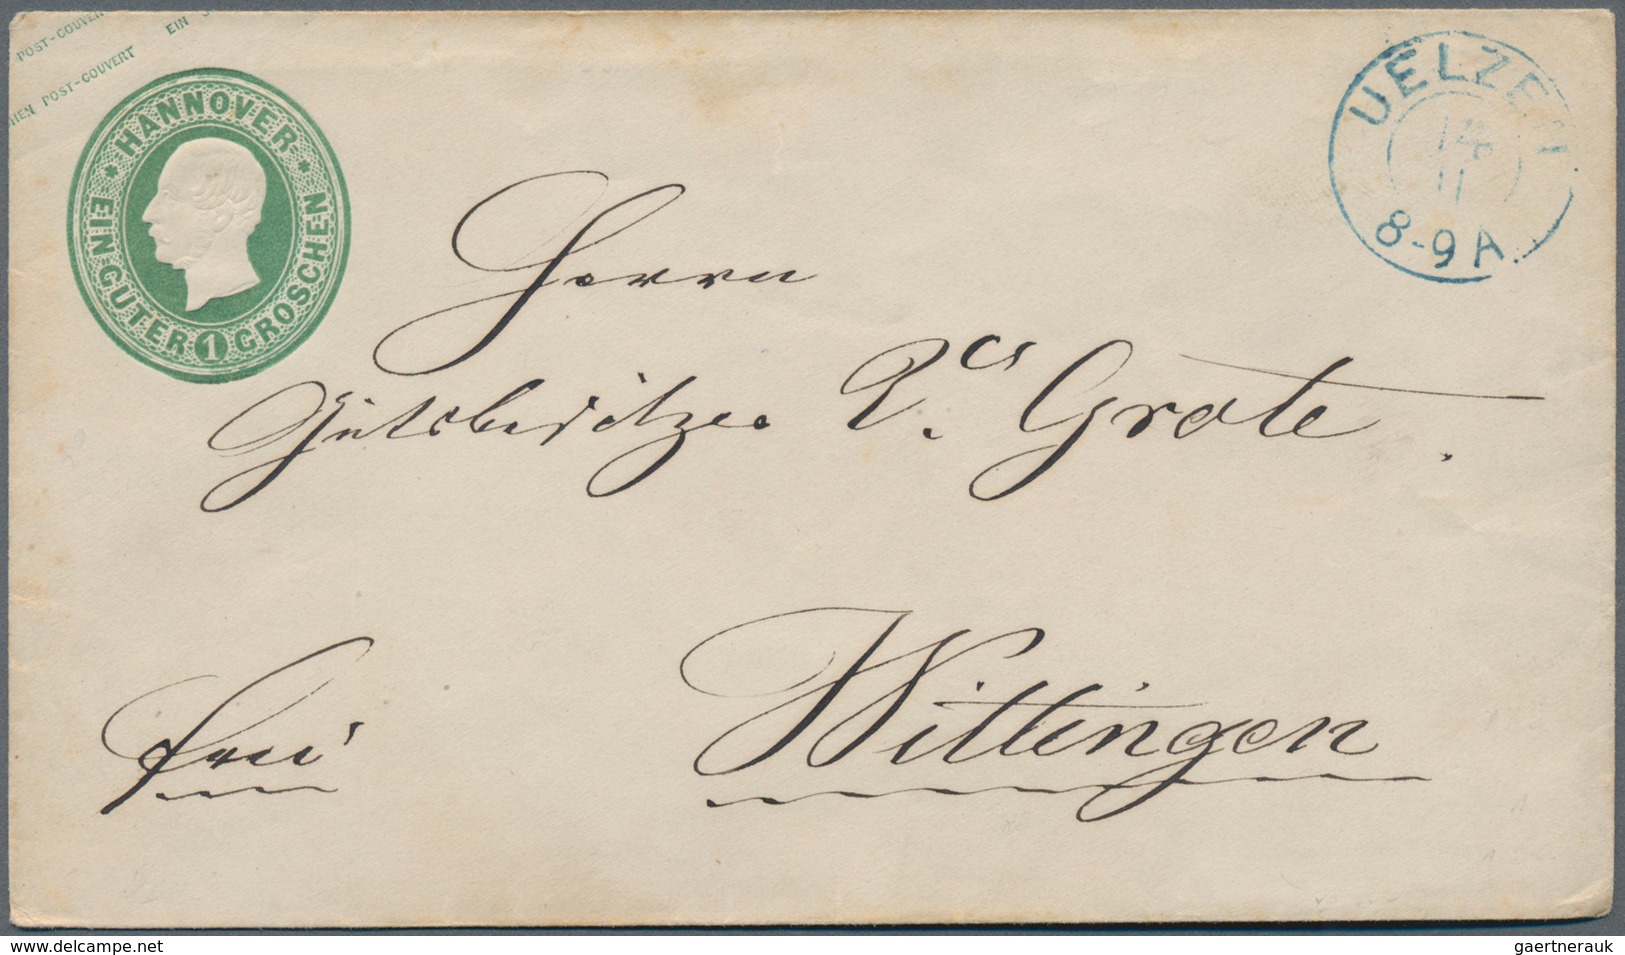 POST-COUVERT EIN
HIEN POST-COUVERT EIN S
HANNOVER
EIN GUTER GROSCHEN
1
UELZEN
14
11
8-9 A.
Herrn
Gutsbesitzer Grote.
frei
Wittingen
www.delcampe.net
gaertnerauk